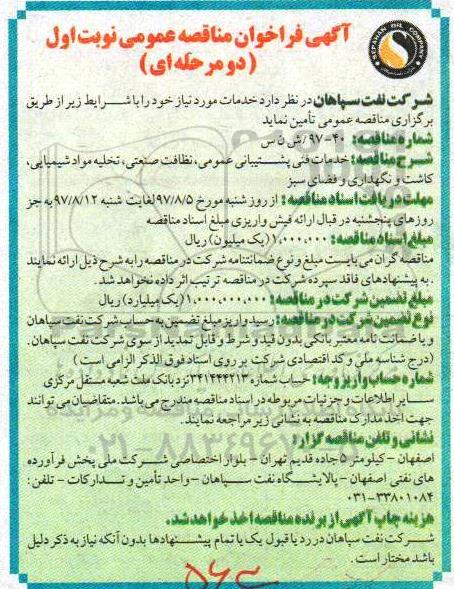 آگهی فراخوان مناقصه عمومی نوبت اول
(دو مرحله ای)
SEPAHAN OIL COMPANY
شرکت نفت سپاهان در نظر دارد خدمات مورد نیاز خود را با شرایط زیر از طریق
برگزاری مناقصه عمومی تأمین نماید
شماره مناقصه: ۴۰-۹۷/ش ن س
شرح مناقصه: خدمات فنی پشتیبانی عمومی، نظافت صنعتی، تخلیه مواد شیمیایی،
کاشت و نگهداری و فضای سبز
مهلت دریافت اسناد مناقصه: از روز شنبه مورخ ۹۷/۸/۵ لغایت شنبه ۹۷/۸/۱۲ به جز
روزهای پنجشنبه در قبال ارائه فیش واریزی مبلغ اسناد مناقصه
مبلغ اسناد مناقصه: ۱،۰۰۰،۰۰۰ (یک میلیون) ریال
مناقصه گران می بایست مبلغ و نوع ضمانتنامه شرکت در مناقصه را به شرح ذیل ارائه نمایند
. به پیشنهادهای فاقد سپرده شرکت در مناقصه ترتیب اثر داده نخواهد شد.
مبلغ تضمین شرکت در مناقصه: ۱،۰۰۰،۰۰۰،۰۰۰ (یک میلیارد) ریال
نوع تضمین شرکت در مناقصه: رسید واریز مبلغ تضمین به حساب شرکت نفت سپاهان
و یا ضمانت نامه معتبر بانکی بدون قید و شرط و قابل تمدید از سوی شرکت نفت سپاهان.
(درج شناسه ملی و کد اقتصادی شرکت بر روی اسناد فوق الذکر الزامی است)
شماره حساب واریز وجه: حساب شماره ۳۴۱۴۴۴۲۱۳ نزد بانک ملت شعبه مستقل مرکزی
سایر اطلاعات و جزئیات مربوطه در اسناد مناقصه مندرج می باشد. متقاضیان می توانند
جهت اخذ مدارک مناقصه به نشانی زیر مراجعه نمایند.
نشانی و تلفن مناقصه گزار:
اصفهان - کیلومتر ۵ جاده قدیم تهران - بلوار اختصاصی شرکت ملی پخش فرآورده
های نفتی اصفهان - پالایشگاه نفت سپاهان - واحد تأمین و تدارکات - تلفن:
۰۳۱-۳۳۸۰۱۰۸۴
هزینه چاپ آگهی از برنده مناقصه اخذ خواهد شد.
شرکت نفت سپاهان در رد یا قبول یک یا تمام پیشنهادها بدون آنکه نیاز به ذکر دلیل
باشد مختار است.